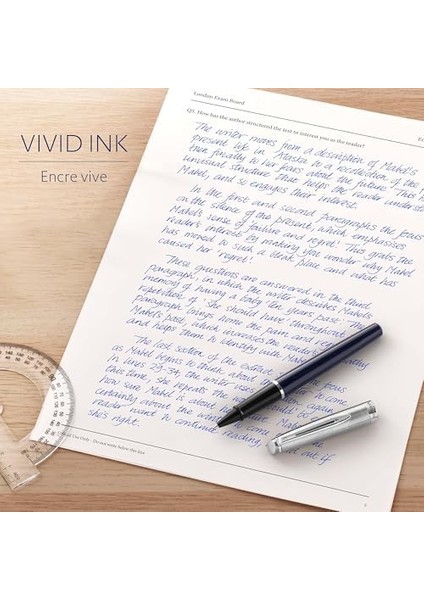 VIVID INK
Encre vive
London Exam Board
Q3. How has the author structured the text to interest you as the reader?
The writer moves from a description of Mabel's
present life in Alaska to a recollection of the
then finally to her fears about the future. This
unusual structure that helps the reader underst
Mabel, and so engages their interest.
In the first and second paragraphs the focus
on the silence of the present, which emphasises
Mabel's sense of failure and regret. This grabs the
reader's interest by making you wonder why Mabel
has moved to such a bleak place and what has
caused her 'regret'.
These questions are answered in the third
paragraph, in which the writer describes Mabel's
memory of having a baby ten years past. The
repetition of 'She should have' throughout
paragraph brings home the pain and regret
Mabel's past, which increases the reader's
and helps them to identify with Mabel
The last section of the extract
as Mabel begins to think about
In lines 29-34, the writer uses
this time, she repeats the
how sure Mabel is about her future.
certainty about the
reader want to continue reading,
out if
she's right.
Use Only - Do not write below this line